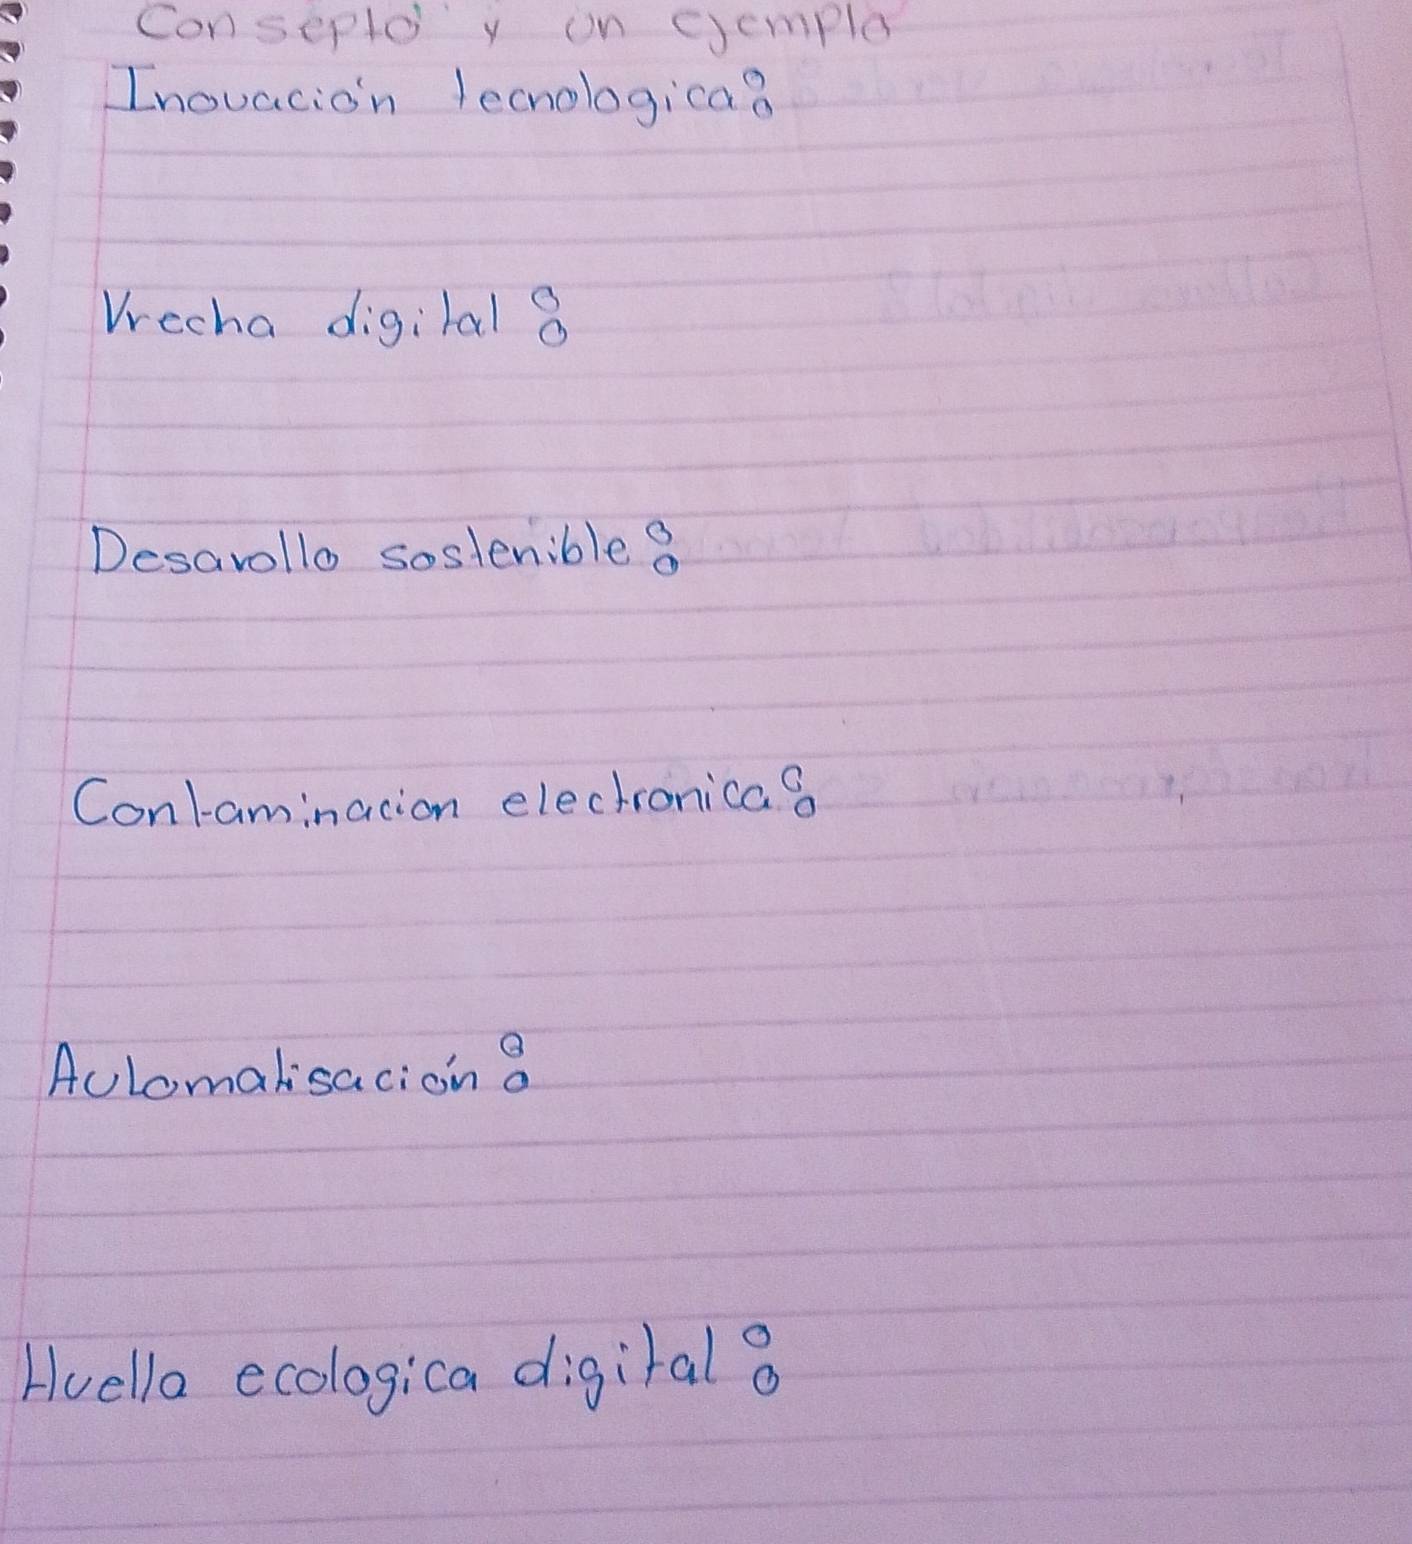 Consepto y un ejemplo
Inovación tecnologica:
Vrecha digital:
Desarollo sostenible:
Contaminacion electronica:
Automatisación:
Huella ecologica digital: